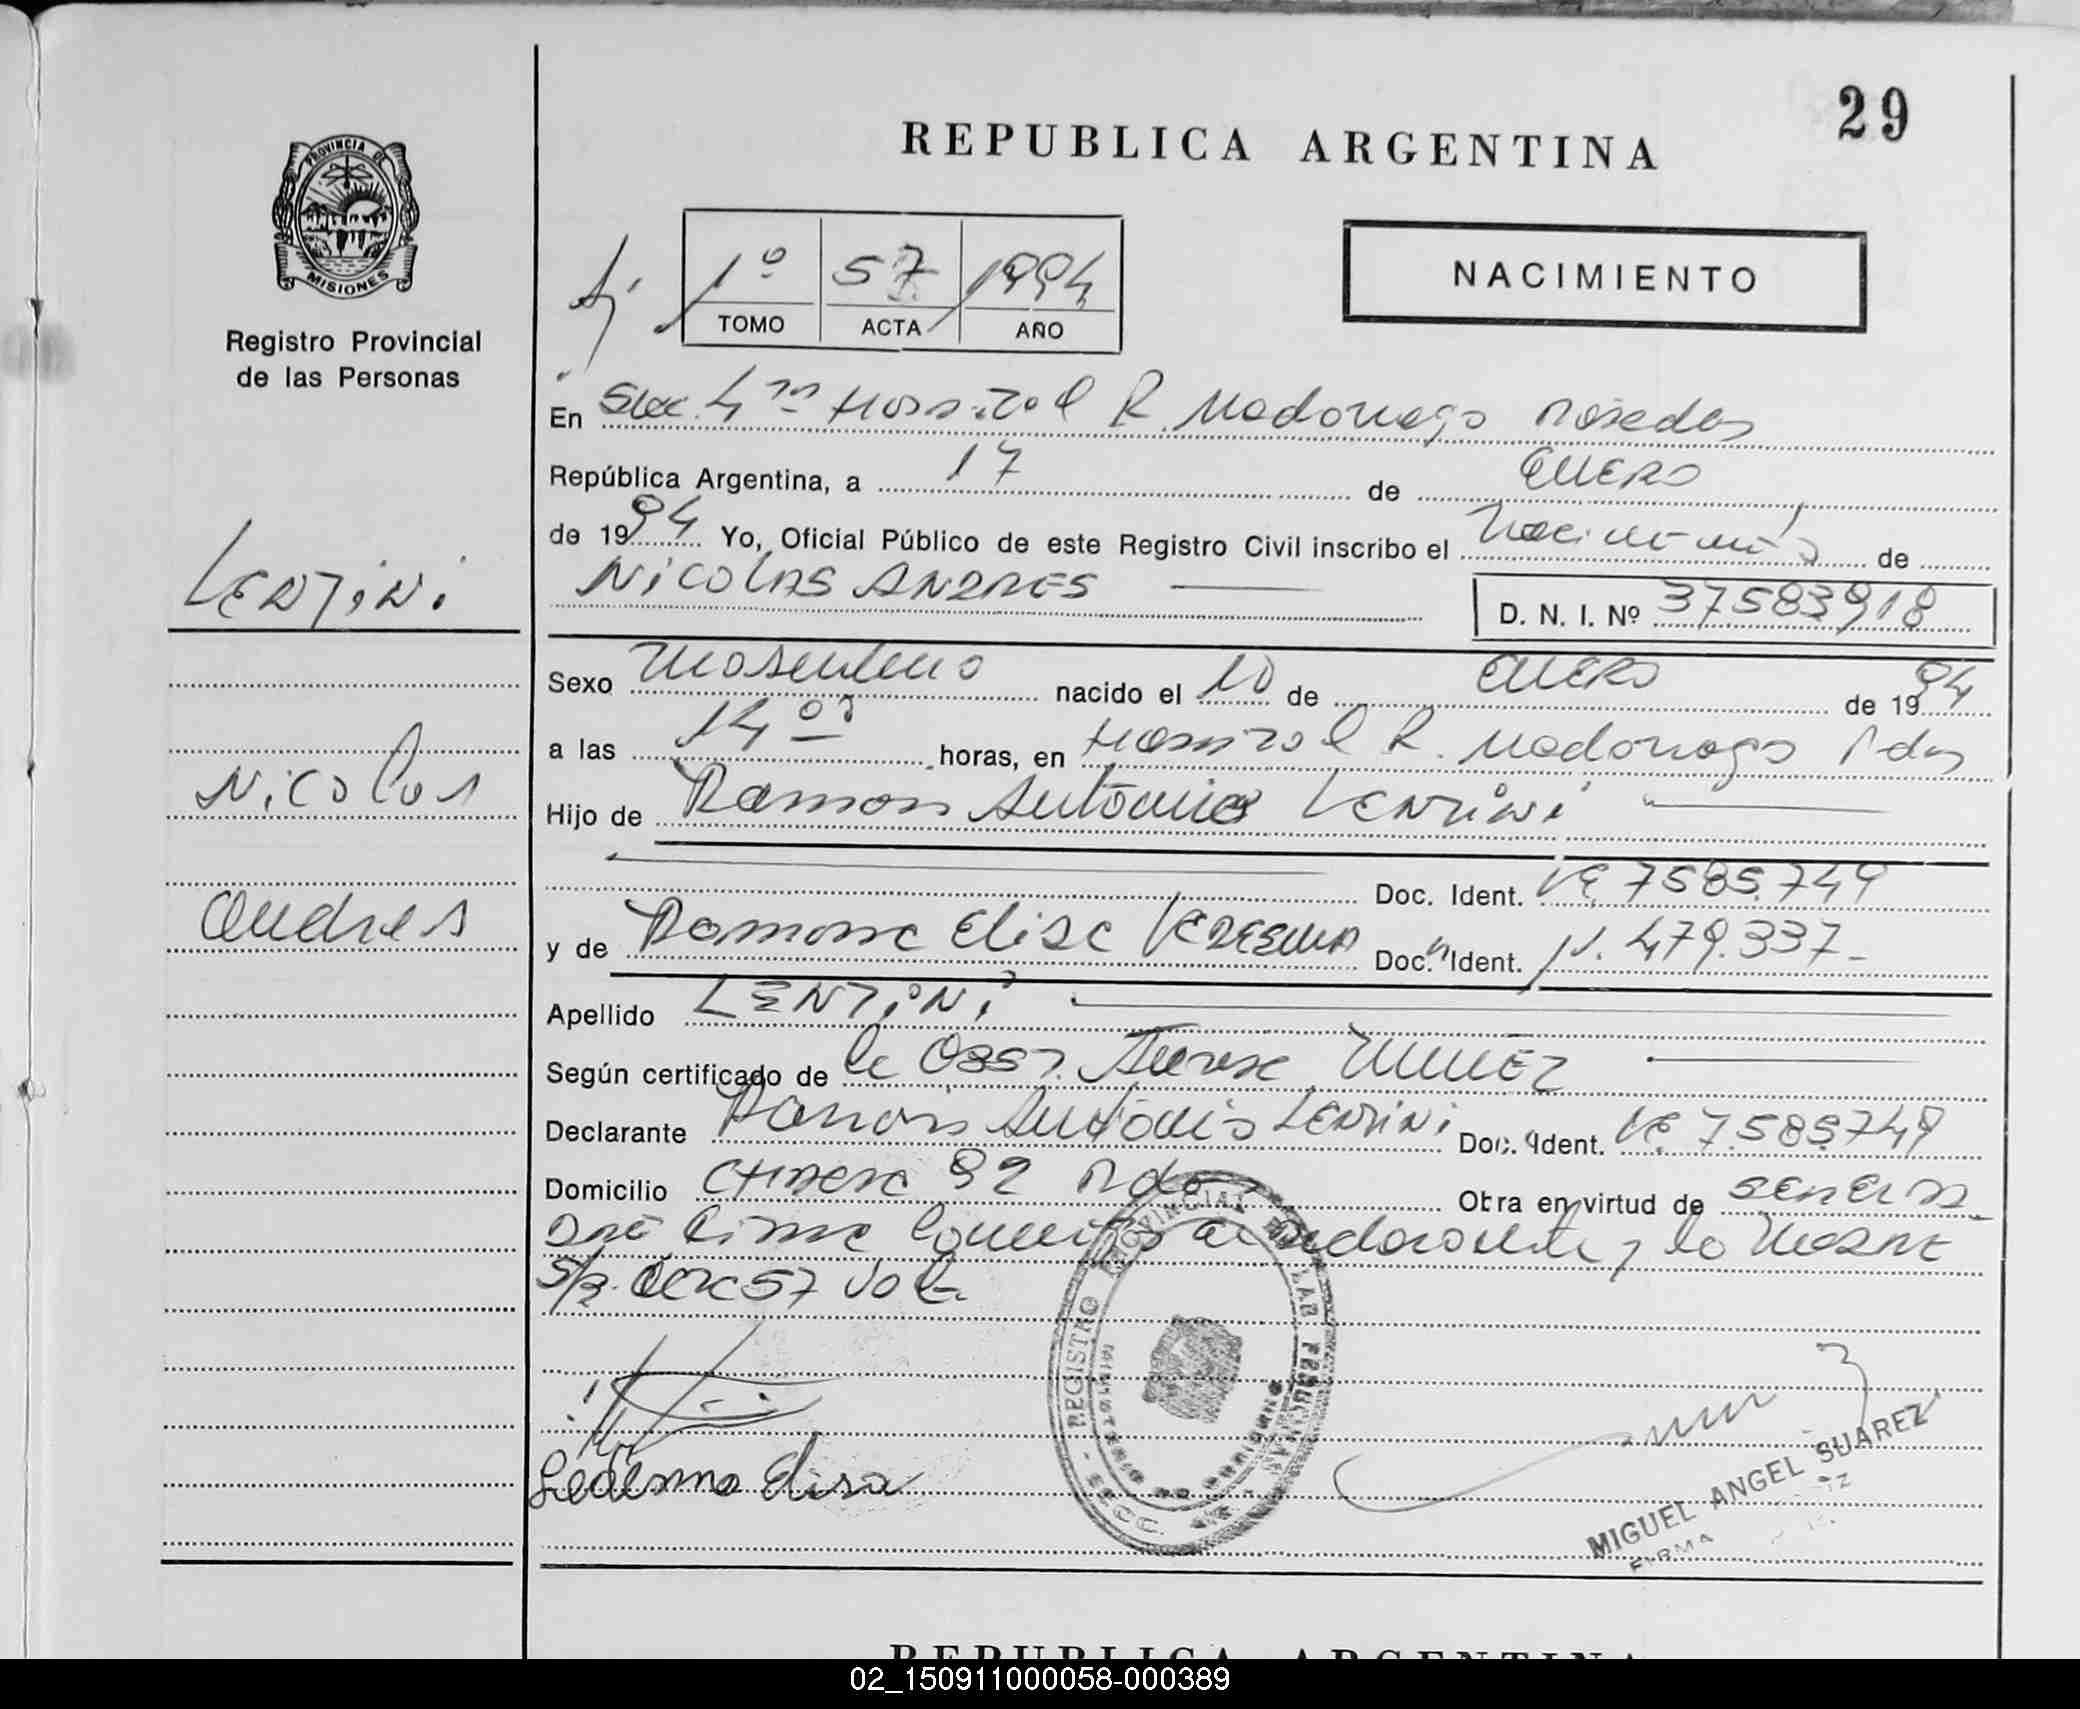 29
REPUBLICA ARGENTINA
PROVINCIA DE
MISIONES
Registro Provincial
de las Personas
1º 57 1994
TOMO ACTA AÑO
NACIMIENTO
En Secc. 4ta Hospital R. Madariaga Posadas
República Argentina, a 17 de ENERO
de 1994 Yo, Oficial Público de este Registro Civil inscribo el Nacimiento de
NICOLAS ANDRES
D. N. I. Nº 37583918
LENTiNi
Sexo Masculino nacido el 10 de ENERO de 1994
a las 14 horas, en Hospital R. Madariaga Pdas
Nicolas
Hijo de Ramon Antonio LENTiNi
Doc. Ident. 7585.749
Andres
y de Ramona Elisa LEDESMA Doc. Ident. 479.337-
Apellido LENTiNi
Según certificado de la Obst. NUÑEZ
Declarante Ramon Antonio LENTiNi Doc. Ident. 7.585749
Domicilio 92 Pdas Otra en virtud de
firma el declarante y la Madre
S/R. 57 Vale
Ledesma Elisa
REGISTRO PROVINCIAL DE LAS PERSONAS
MINISTERIO DE GOBIERNO
MIGUEL ANGEL SUAREZ
FIRMA
REPUBLICA ARGENTINA
02_150911000058-000389